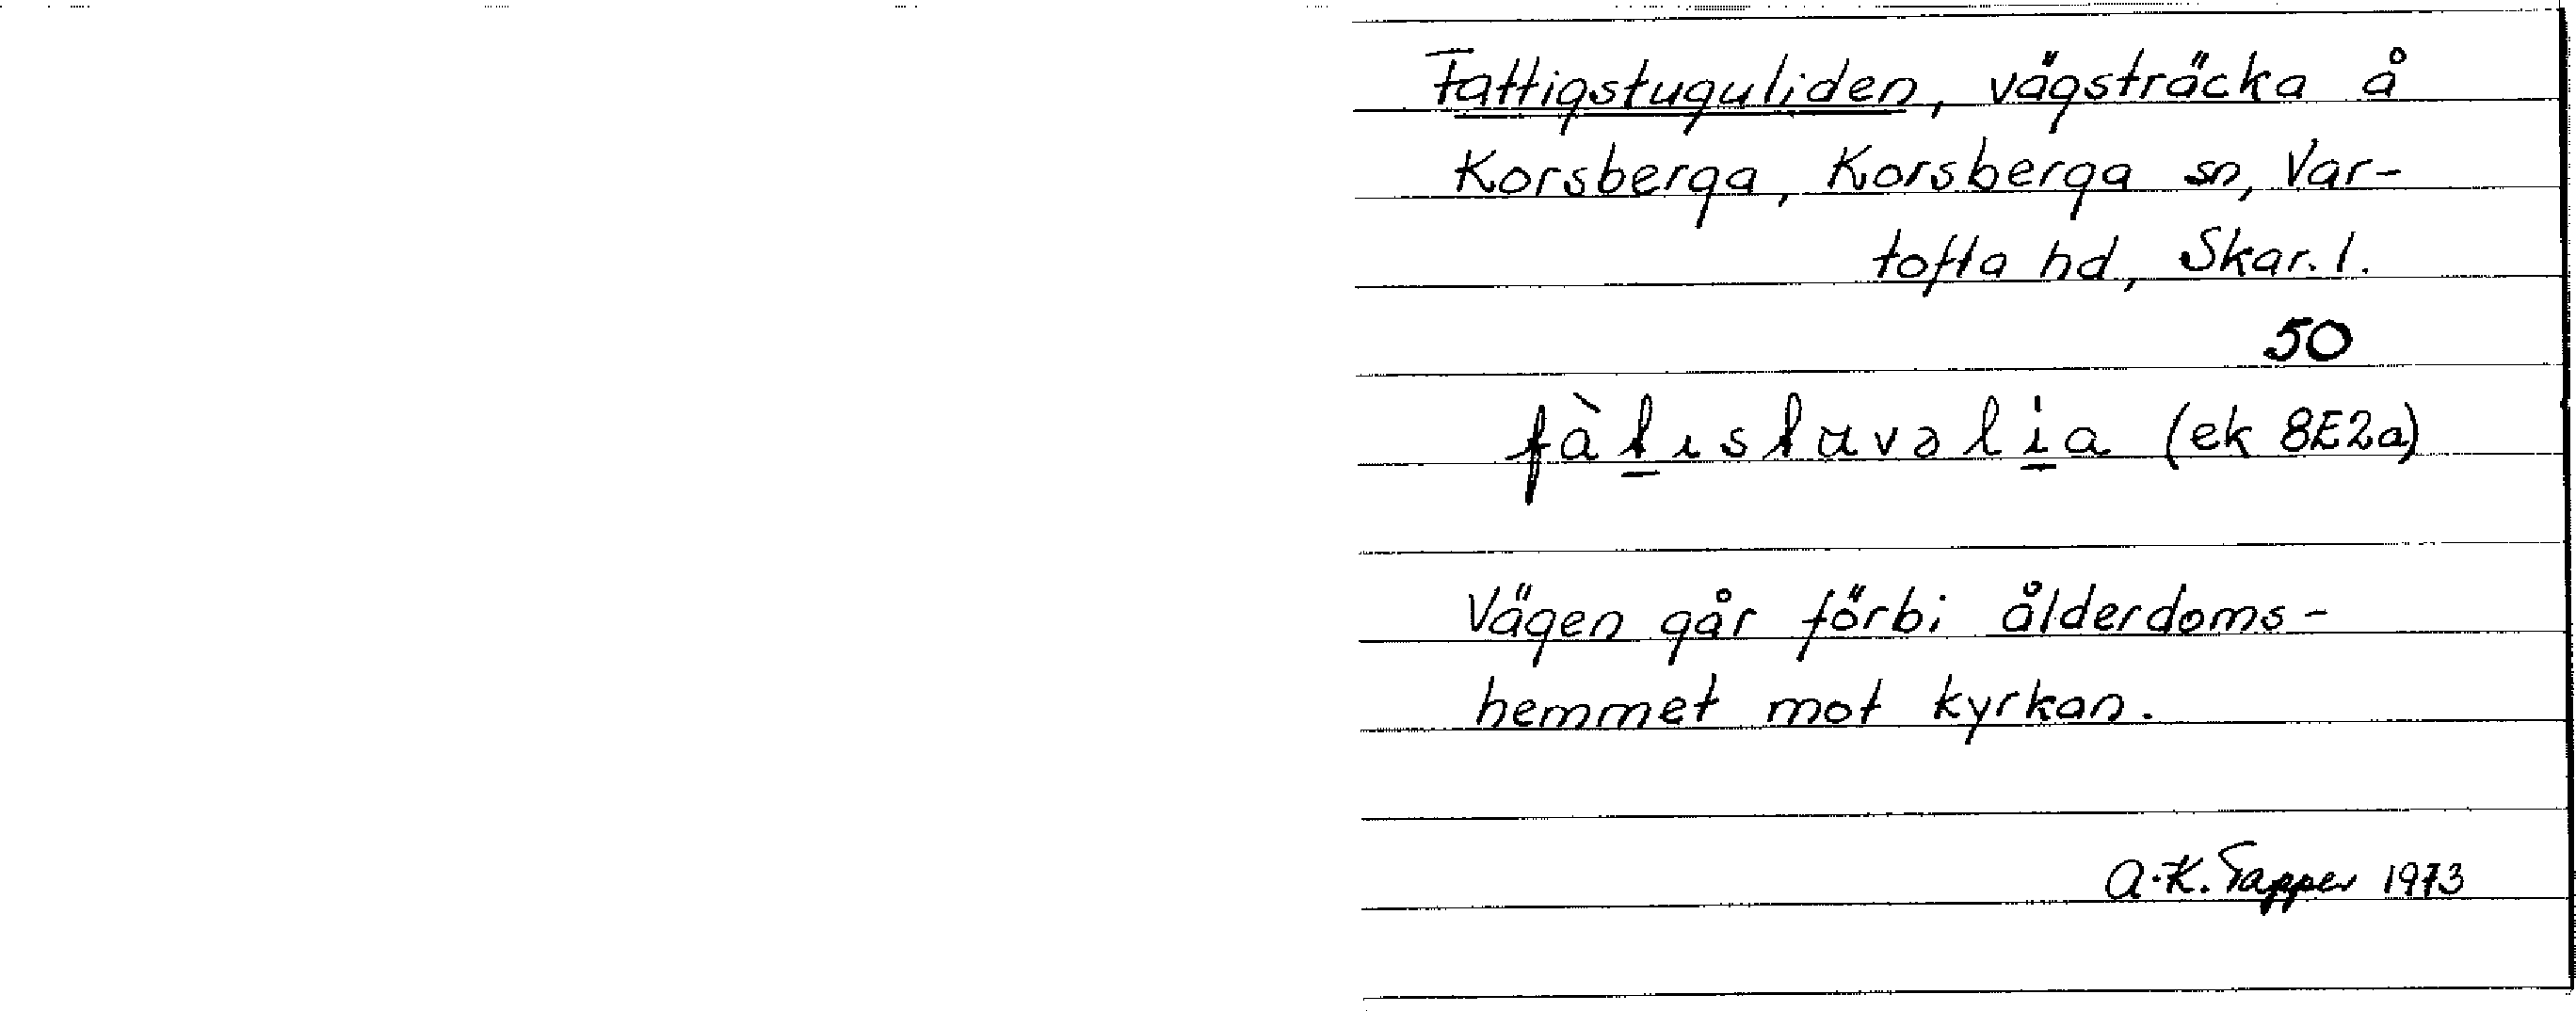 Fattigstuguliden, vägsträcka å
Korsberga, Korsberga sn, Var-
tofta hd, Skar. l.
50
fàtıstuvəlia (ek 8E2a)
Vägen går förbi ålderdoms-
hemmet mot kyrkan.
A-K. Tapper 1973